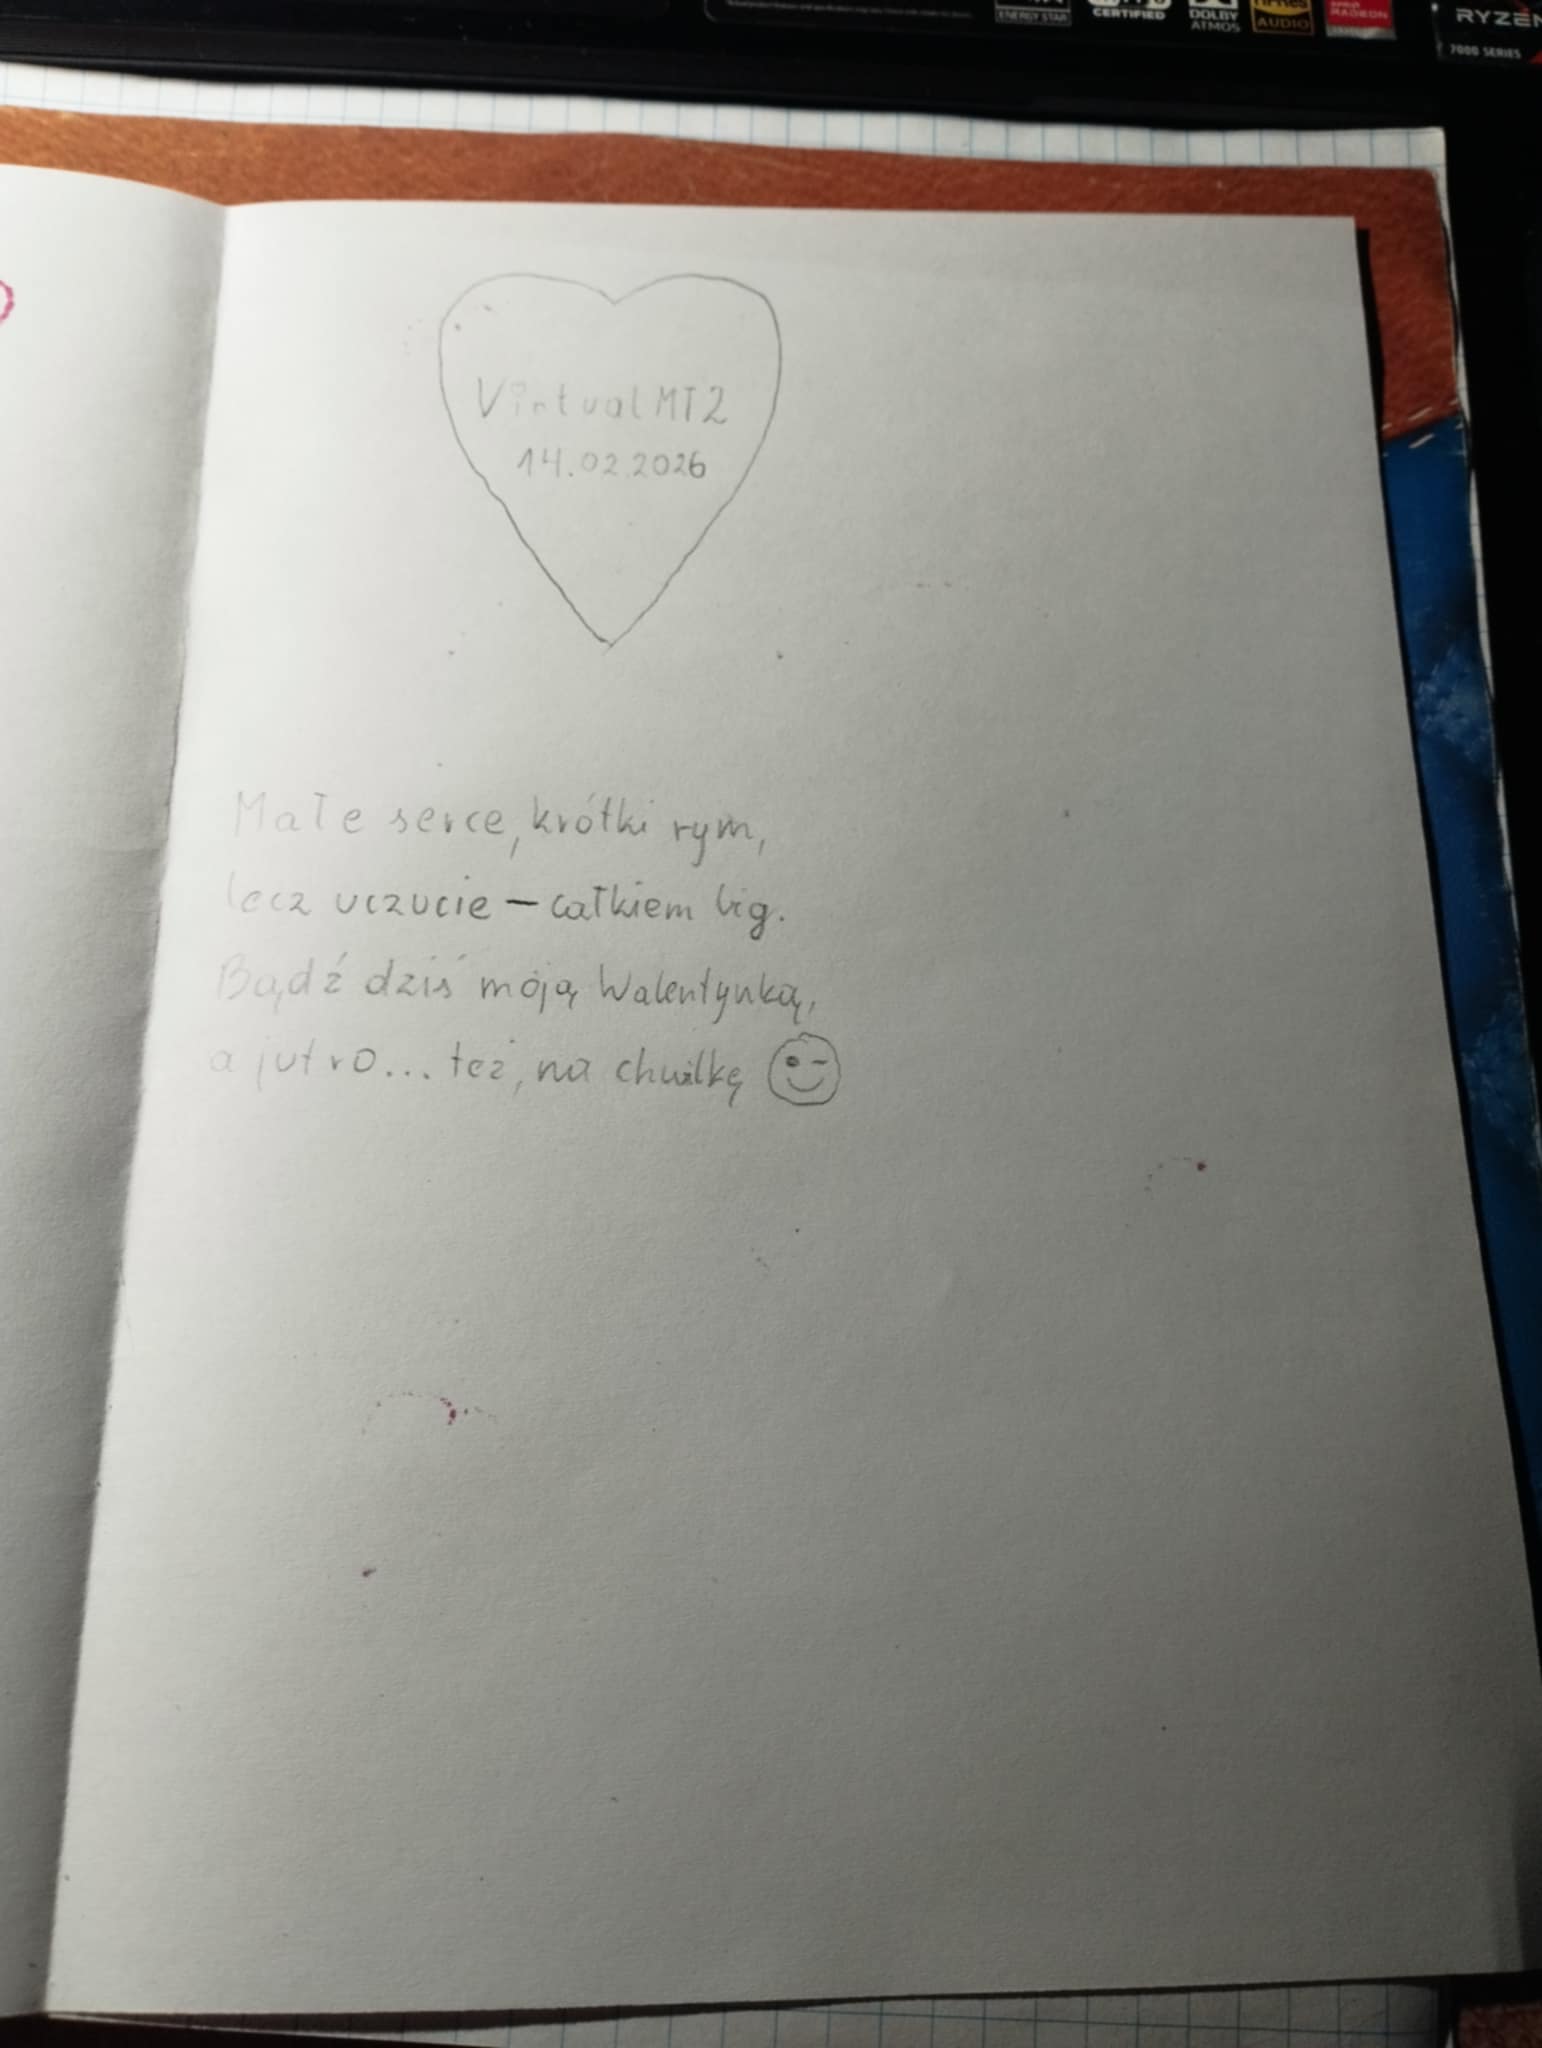 ENERGY STAR
CERTIFIED
DOLBY
ATMOS
AUDIO
RADEON
RYZEN
7000 SERIES
VirtualMT2
14.02.2026
Małe serce, krótki rym,
lecz uczucie – całkiem big.
Bądź dziś moją Walentynką,
a jutro... też, na chwilkę 😉